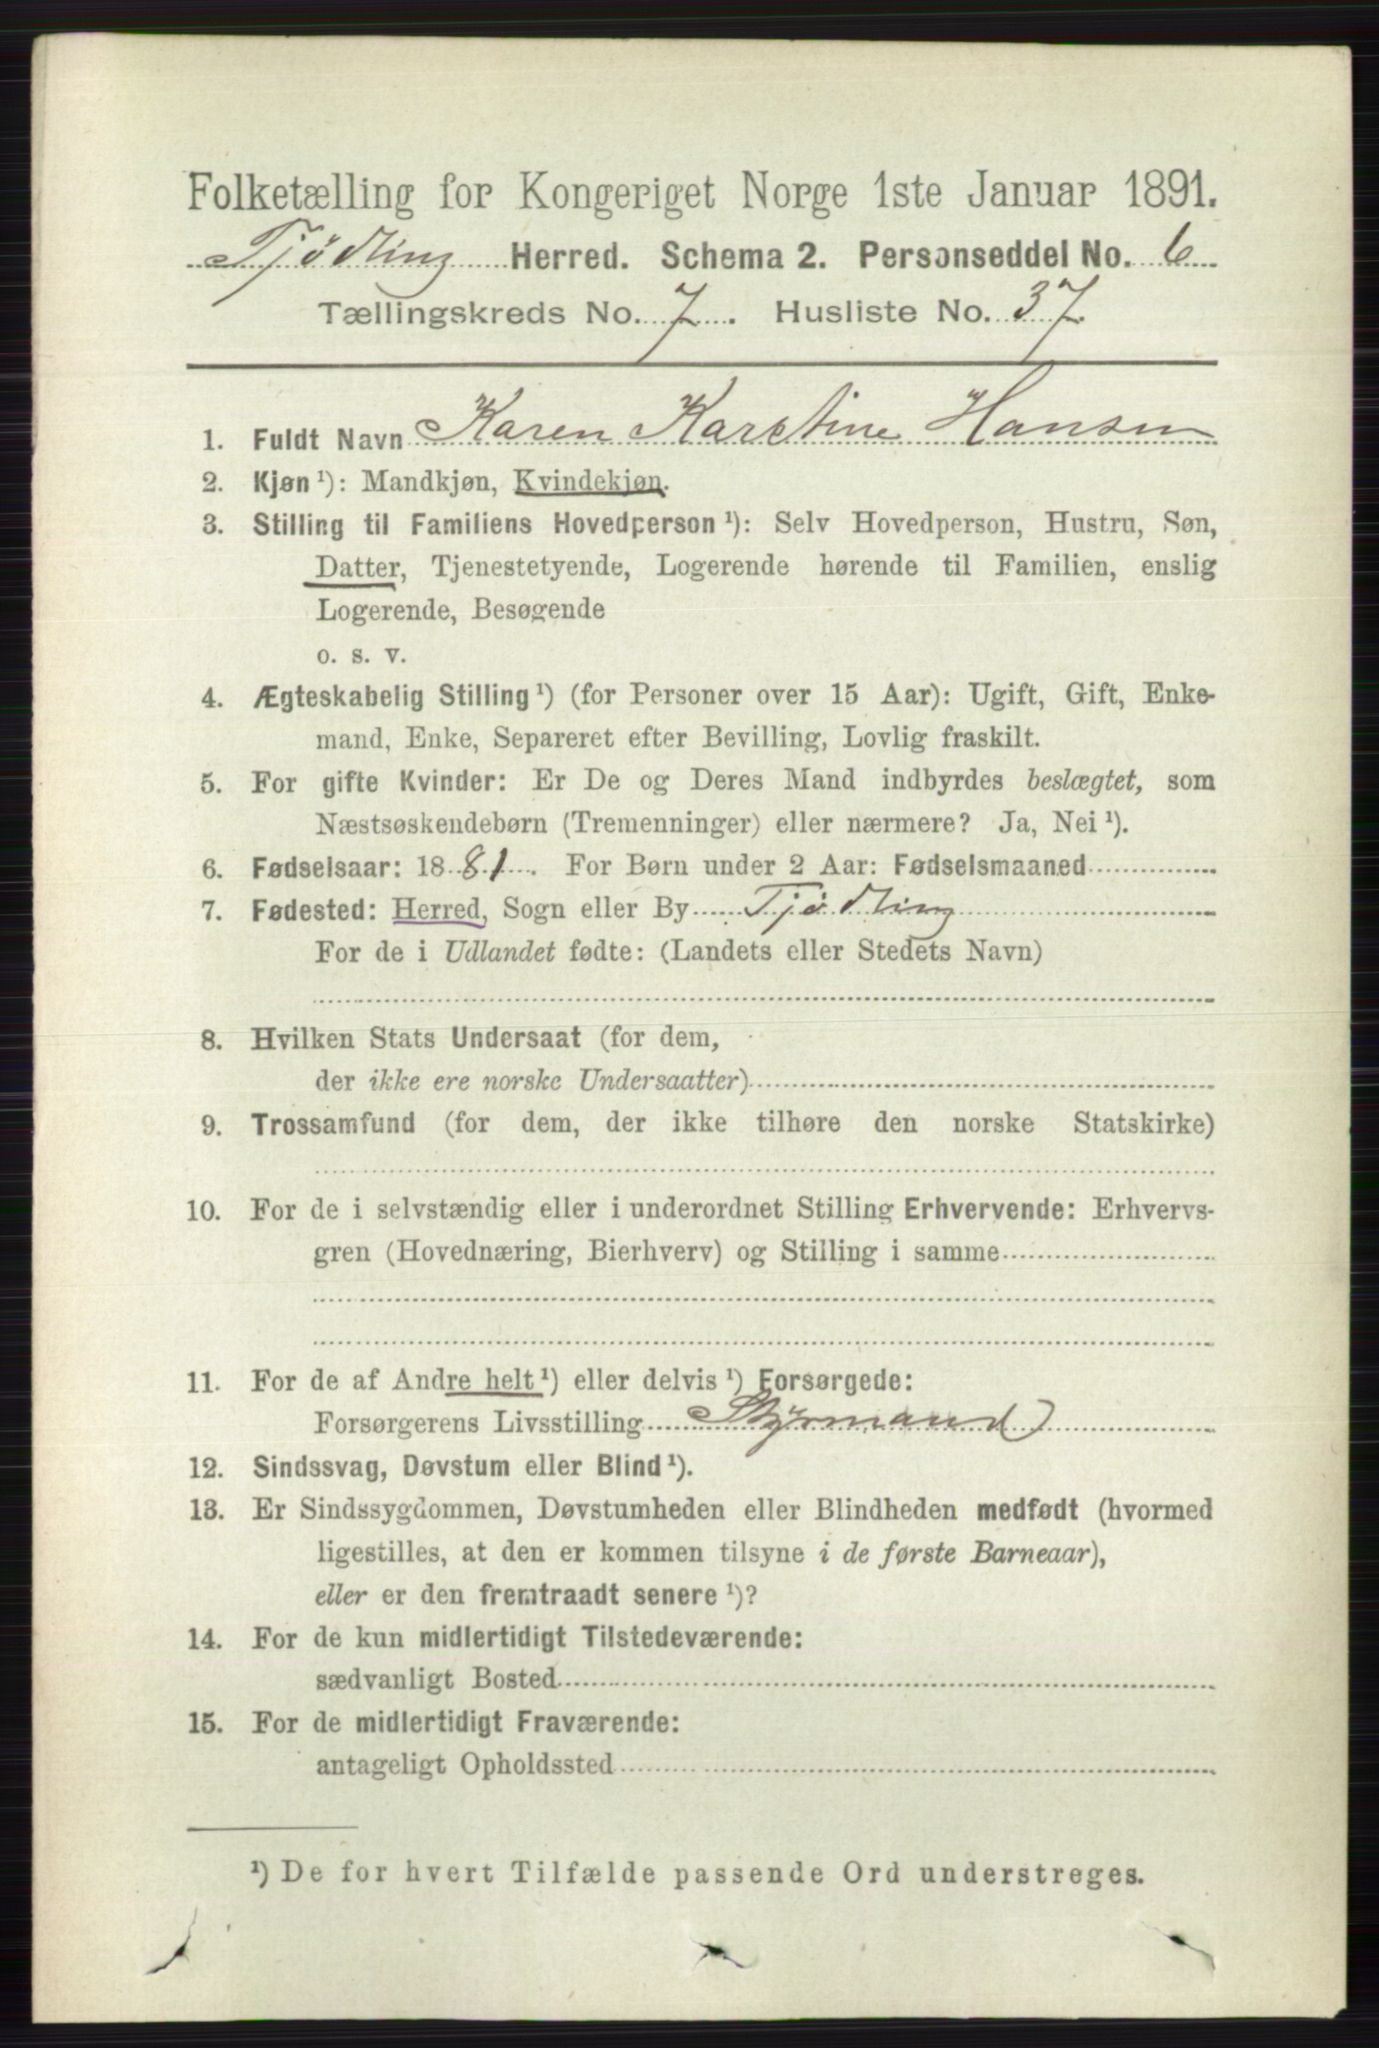 Folketælling for Kongeriget Norge 1ste Januar 1891.
Tjødling Herred. Schema 2. Personseddel No. 6
Tællingskreds No. 7. Husliste No. 37
1. Fuldt Navn Karen Karstine Hansen
2. Kjøn ¹): Mandkjøn, Kvindekjøn.
3. Stilling til Familiens Hovedperson ¹): Selv Hovedperson, Hustru, Søn,
Datter, Tjenestetyende, Logerende hørende til Familien, enslig
Logerende, Besøgende
o. s. v.
4. Ægteskabelig Stilling ¹) (for Personer over 15 Aar): Ugift, Gift, Enke-
mand, Enke, Separeret efter Bevilling, Lovlig fraskilt.
5. For gifte Kvinder: Er De og Deres Mand indbyrdes beslægtet, som
Næstsøskendebørn (Tremenninger) eller nærmere? Ja, Nei ¹).
6. Fødselsaar: 1881. For Børn under 2 Aar: Fødselsmaaned
7. Fødested: Herred, Sogn eller By Tjødling
For de i Udlandet fødte: (Landets eller Stedets Navn)
8. Hvilken Stats Undersaat (for dem,
der ikke ere norske Undersaatter)
9. Trossamfund (for dem, der ikke tilhøre den norske Statskirke)
10. For de i selvstændig eller i underordnet Stilling Erhvervende: Erhvervs-
gren (Hovednæring, Bierhverv) og Stilling i samme
11. For de af Andre helt ¹) eller delvis ¹) Forsørgede:
Forsørgerens Livsstilling Styrmand
12. Sindssvag, Døvstum eller Blind ¹).
13. Er Sindssygdommen, Døvstumheden eller Blindheden medfødt (hvormed
ligestilles, at den er kommen tilsyne i de første Barneaar),
eller er den fremtraadt senere ¹)?
14. For de kun midlertidigt Tilstedeværende:
sædvanligt Bosted
15. For de midlertidigt Fraværende:
antageligt Opholdssted
¹) De for hvert Tilfælde passende Ord understreges.